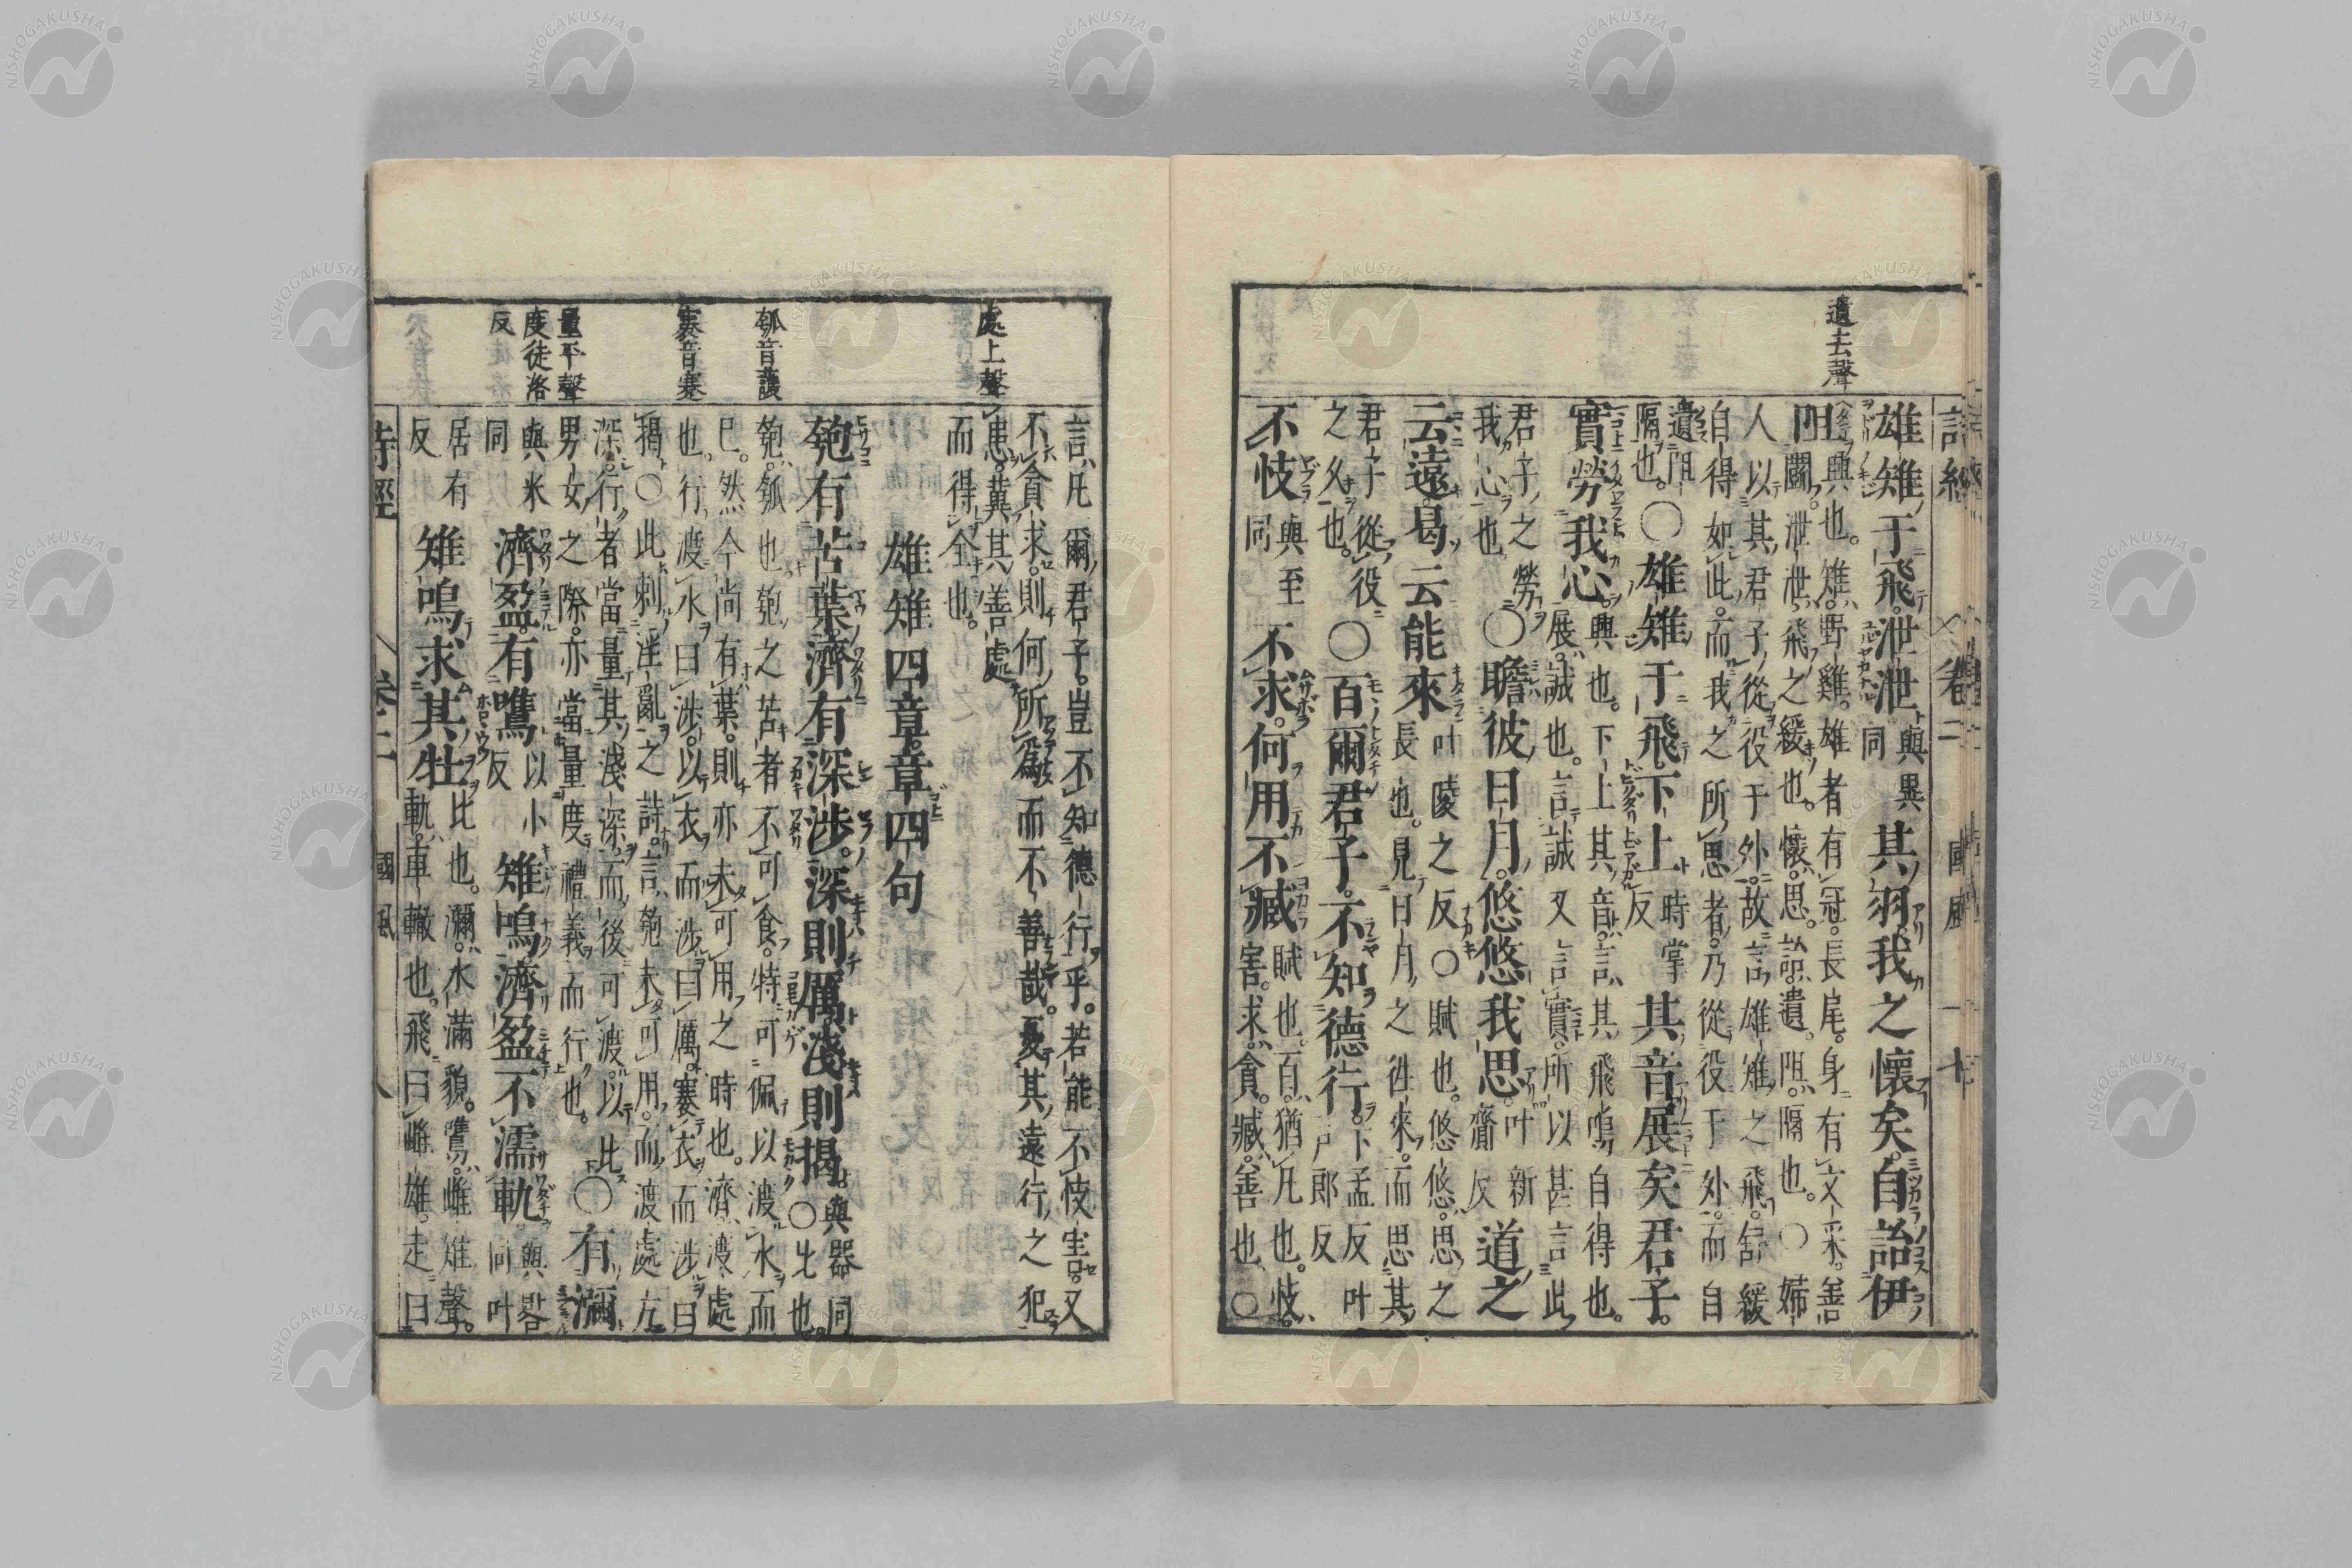 詩經 卷二 國風 七
遺去聲
雄雉于飛。泄泄與異同其羽。我之懷矣。自詒伊
阻。興也。雉。野雞。雄者有冠。長尾。身有文采。善
鬪。泄泄。飛之緩也。懷。思。詒。遺。阻。隔也。○婦
人以其君子從役于外。故言雄雉之飛。舒緩
自得如此。而我之所思者。乃從役于外。而自
遺阻隔也。○雄雉于飛。下上時掌反其音。展矣君子。
實勞我心。興也。下上其音。言其飛鳴自得也。
展。誠也。言誠又言實。所以甚言此
君子之勞我心也。○瞻彼日月。悠悠我思。叶新齎反道之
云遠。曷云能來。叶陵之反○賦也。悠悠。思之
長也。見日月之往來。而思其
君子從役之久也。○百爾君子。不知德行。下孟反叶戶郎反
不忮與至同不求。何用不臧。賦也。百。猶凡也。忮。
害。求。貪。臧。善也。○
處上聲
瓠音護
褰音寋
量平聲
度徒洛反
言凡爾君子。豈不知德行乎。若能不忮害。又
不貪求。則何所爲而不善哉。憂其遠行之犯
患。冀其善處
而得全也。
雄雉四章。章四句
匏有苦葉。濟有深涉。深則厲。淺則揭。與器同○比也。
匏。瓠也。匏之苦者不可食。特可佩以渡水而
已。然今尚有葉。則亦未可用之時也。濟。渡處
也。行渡水曰涉。以衣而涉曰厲。褰衣而涉曰
揭。○此刺淫亂之詩。言匏未可用。而渡處方
深。行者當量其淺深。而後可渡。以此
男女之際。亦當量度禮義而行也。○有瀰
與米同濟盈。有鷕以小反雉鳴。濟盈不濡軌。與晷同叶
居有反雉鳴求其牡。比也。瀰。水滿貌。鷕。雌雉聲。
軌。車轍也。飛曰雌雄。走曰
詩經 卷二 國風 八